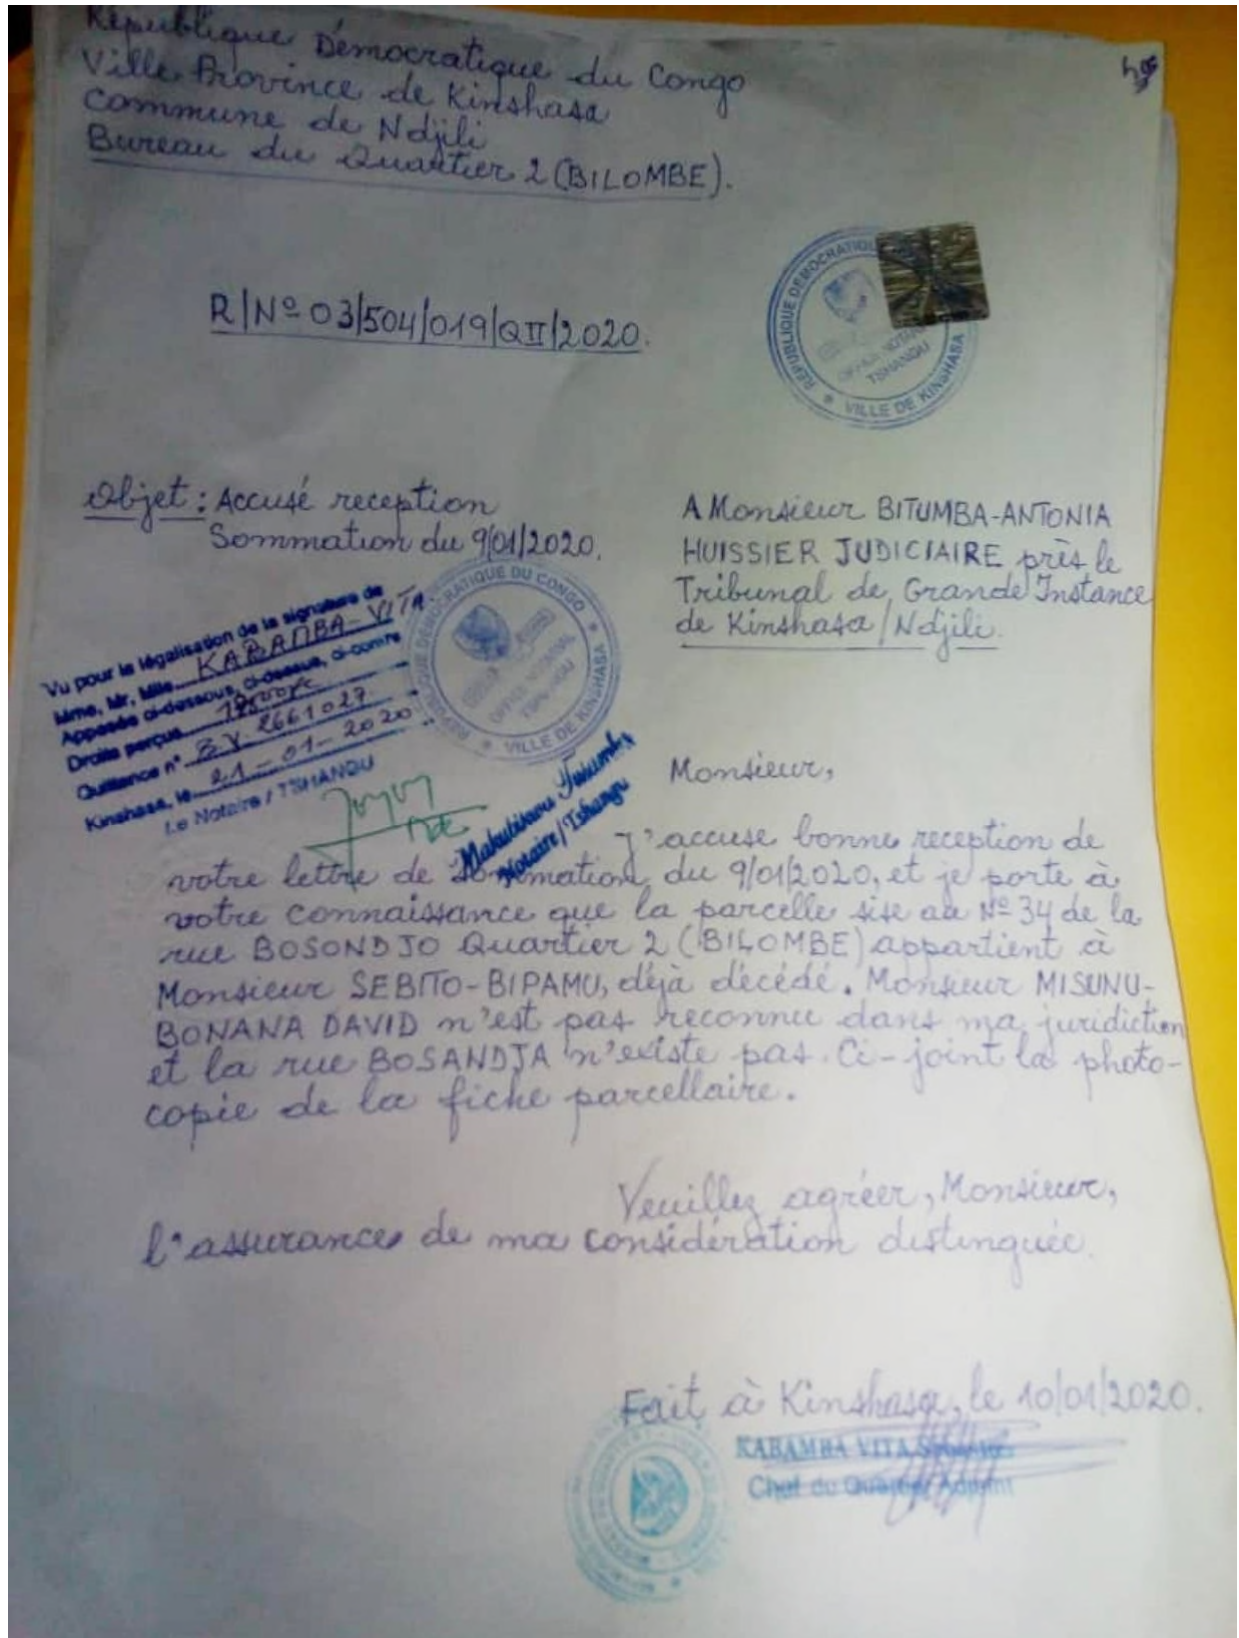 République Démocratique du Congo
Ville Province de Kinshasa
Commune de Ndjili
Bureau du Quartier 2 (BILOMBE).
R/Nº 03/504/019/QII/2020.
RÉPUBLIQUE DÉMOCRATIQUE
OFFICE NOTARIAL
TSHANGU
VILLE DE KINSHASA
Objet : Accusé reception
Sommation du 9/01/2020.
A Monsieur BITUMBA-ANTONIA
HUISSIER JUDICIAIRE près le
Tribunal de Grande Instance
de Kinshasa/Ndjili.
Vu pour la légalisation de la signature de
Mme, Mr, Mlle KABAMBA-VITA
Apposée ci-dessous, ci-dessus, ci-contre
Droits perçus
Quittance n° BV 2661027
Kinshasa, le 21-01-2020
Le Notaire / TSHANGU
RÉPUBLIQUE DÉMOCRATIQUE DU CONGO
OFFICE NOTARIAL
TSHANGU
VILLE DE KINSHASA
Notaire/Tshangu
Monsieur,
J'accuse bonne reception de
votre lettre de Sommation du 9/01/2020, et je porte à
votre connaissance que la parcelle sise au Nº 34 de la
rue BOSONDJO Quartier 2 (BILOMBE) appartient à
Monsieur SEBITO-BIPAMU, déjà décédé. Monsieur MISUNU-
BONANA DAVID n'est pas reconnu dans ma juridiction
et la rue BOSANDJA n'existe pas. Ci-joint la photo-
copie de la fiche parcellaire.
Veuillez agréer, Monsieur,
l'assurances de ma considération distinguée.
Fait à Kinshasa, le 10/01/2020.
KABAMBA VITA
Chef du Quartier Adjoint